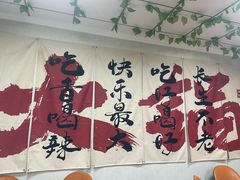 吃香喝辣
快乐最大
吃好喝好
长生不老